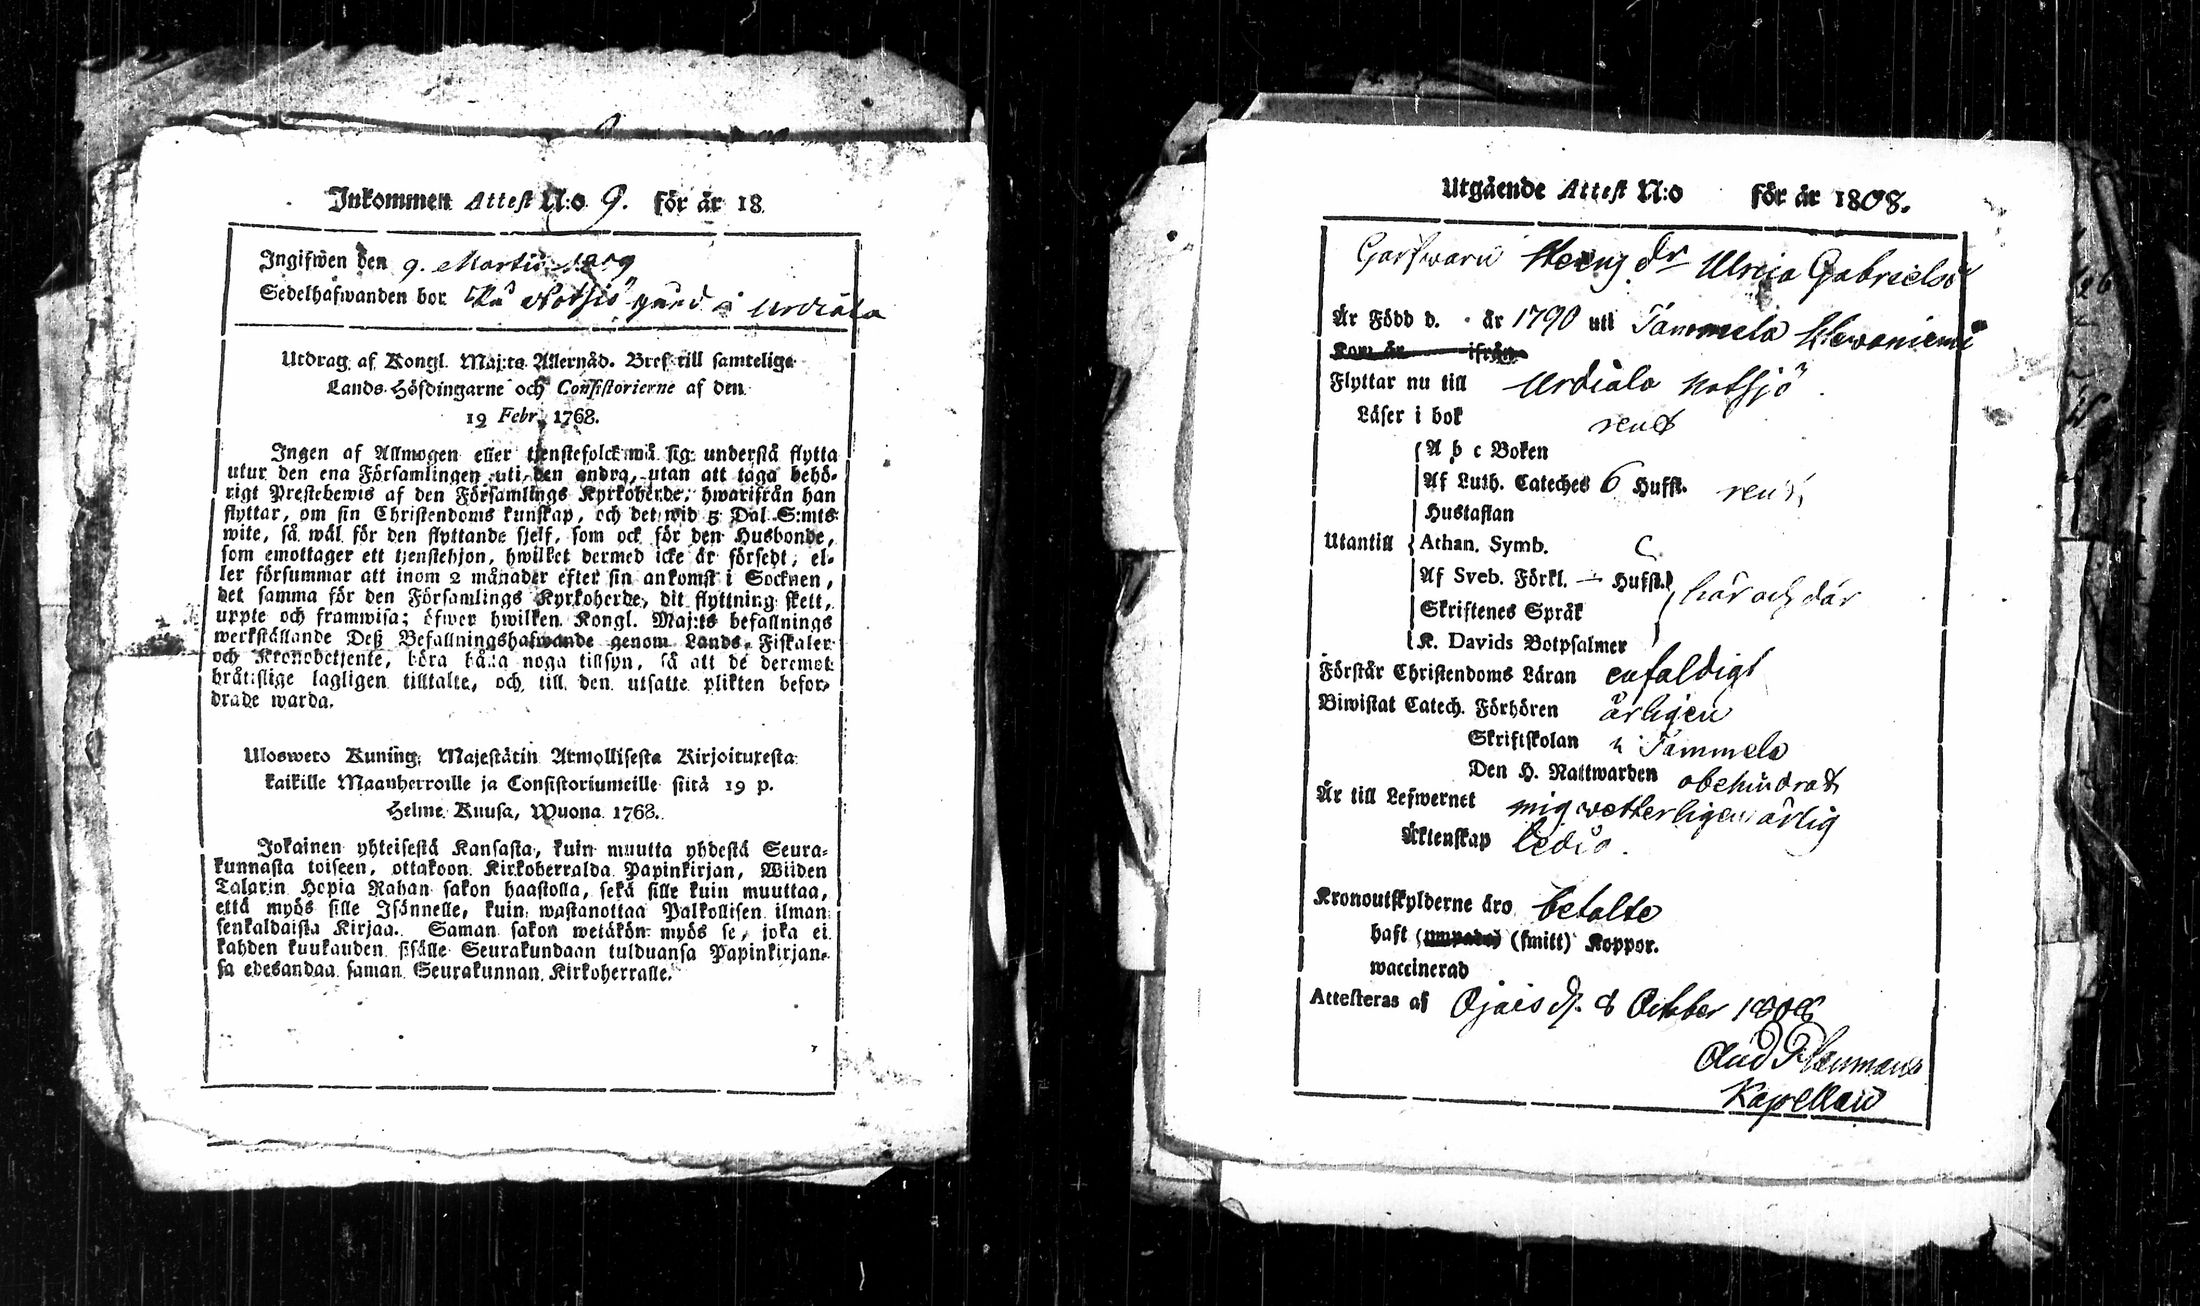 Inkommen Attest N:o 9. för år 18
Ingifwen den 9. Martii 1809
Sedelhafwanden bor På Notsjö gård i Urdiala
Utdrag af Kongl. Maj:ts Allernåd. Bref till samtelige
Lands-Höfdingarne och Consistorierne af den
19 Febr. 1768.
Ingen af Allmogen eller tjenstefolck må sig understå flytta
utur den ena Församlingen uti den andra, utan att taga behö-
rigt Prestebewis af den Församlings Kyrkoherde, hwarifrån han
flyttar, om sin Christendoms kunskap, och det wid 5 Dal. S:mts
wite, så wäl för den flyttande sjelf, som ock för den Husbonde,
som emottager ett tjenstehjon, hwilket dermed icke är försedt, el-
ler försummar att inom 2 månader efter sin ankomst i Socknen,
det samma för den Församlings Kyrkoherde, dit flyttning skett,
uppte och framwisa; öfwer hwilken Kongl. Maj:ts befallnings
werkställande Deß Befallningshafwande genom Lands-Fiskaler
och Kronobetjente, böra hålla noga tillsyn, så att de deremot
bråtslige lagligen tilltalte, och till den utsatte plikten befor-
drade warda.
Ulosweto Kuning. Majestätin Armollisesta Kirjoituxesta
kaikille Maanherroille ja Consistoriumeille siitä 19 p.
Helme Kuusa, Wuona 1768.
Jokainen yhteisestä Kansasta, kuin muutta yhdestä Seura-
kunnasta toiseen, ottakoon Kirkoherralda Papinkirjan, Wiiden
Talarin Hopia Rahan sakon haastolla, sekä sille kuin muuttaa,
että myös sille Isännelle, kuin wastanottaa Palkollisen ilman
senkaldaista Kirjaa. Saman sakon wetäkön myös se, joka ei
kahden kuukauden sisälle Seurakundaan tulduansa Papinkirjan-
sa edesandaa saman Seurakunnan Kirkoherralle.
Utgående Attest N:o för år 1808.
Garfwaren dr Ulrica Gabrielsd
Är Född d. år 1790 uti Tammela
Kom år ifrån
Flyttar nu till Urdiala Notsjö
Läser i bok rent
A b c Boken
Af Luth. Cateches 6 Hufst. rent
Hustaflan
Utantill Athan. Symb.
Af Sveb. Förkl. — Hufst. här och där
Skriftenes Språk
K. Davids Botpsalmer
Förstår Christendoms Läran enfaldigt
Biwistat Catech. Förhören årligen
Skriftskolan i Tammela
Den H. Nattwarden obehindrat
Är till Lefwernet mig wetterligen ärlig
Äktenskap ledig.
Kronoutskylderne äro betalte
haft (ympade) (smitt) Koppor.
waccinerad
Attesteras af Ojais d. 8 October 1808
Kapellan